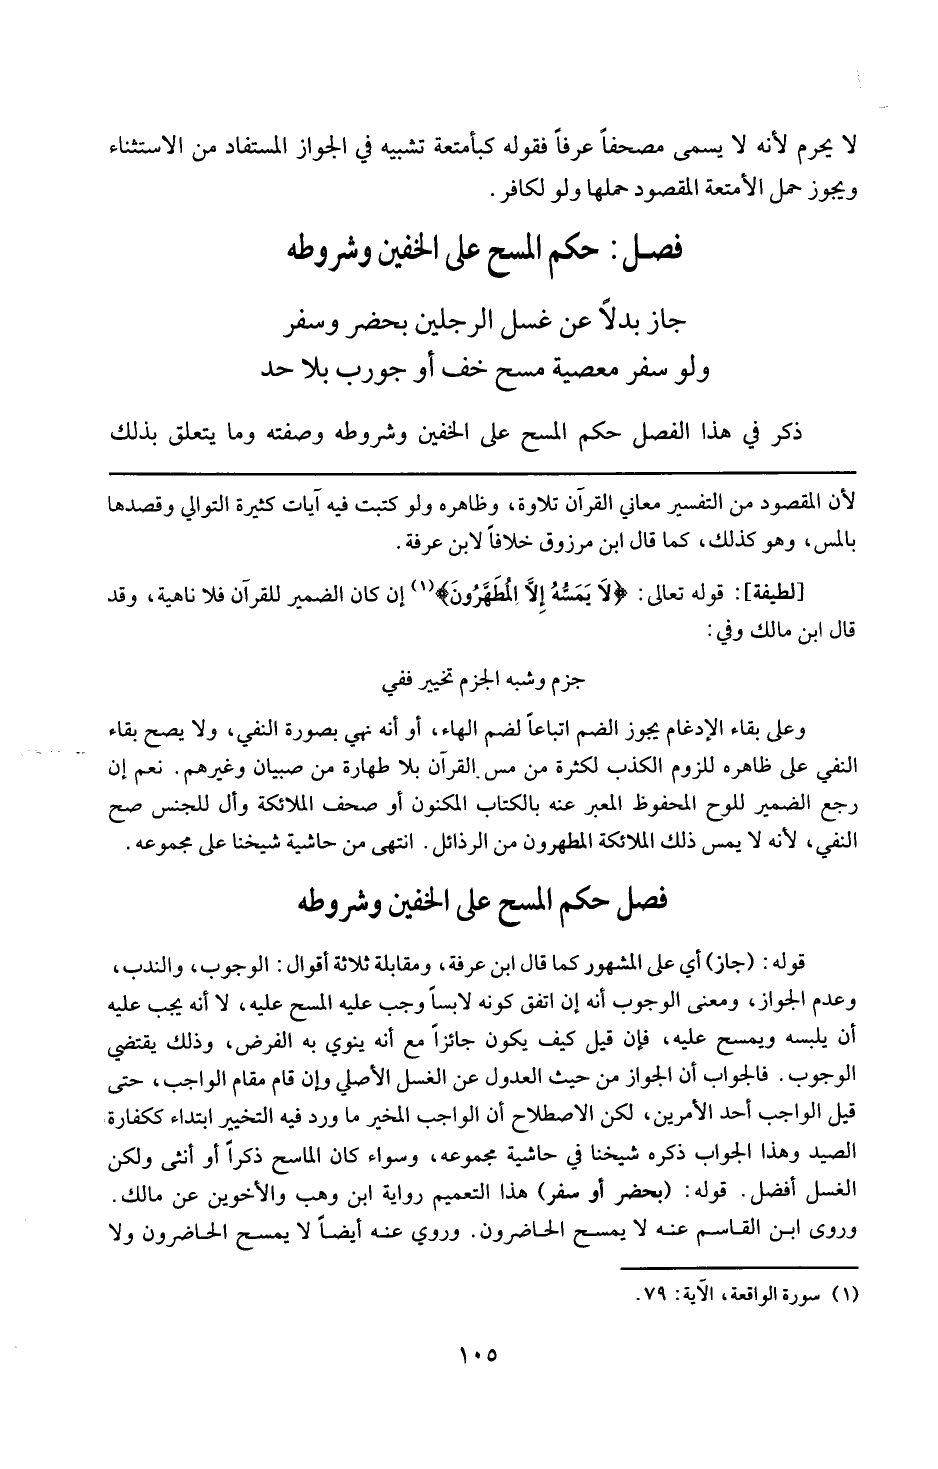 لا يحرم لأنه لا يسمى مصحفاً عرفاً فقوله كبأمتعة تشبيه في الجواز المستفاد من الاستثناء
ويجوز حمل الأمتعة المقصود حملها ولو لكافر.
فصل: حكم المسح على الخفين وشروطه
جاز بدلاً عن غسل الرجلين بحضر وسفر
ولو سفر معصية مسح خف أو جورب بلا حد
ذكر في هذا الفصل حكم المسح على الخفين وشروطه وصفته وما يتعلق بذلك
لأن المقصود من التفسير معاني القرآن تلاوة، وظاهره ولو كتبت فيه آيات كثيرة التوالي وقصدها
بالمس، وهو كذلك، كما قال ابن مرزوق خلافاً لابن عرفة.
[لطيفة]: قوله تعالى: ﴿لَا يَمَسُّهُ إِلَّا الْمُطَهَّرُونَ﴾(١) إن كان الضمير للقرآن فلا ناهية، وقد
قال ابن مالك وفي:
جزم وشبه الجزم تخيير ففي
وعلى بقاء الإدغام يجوز الضم اتباعاً لضم الهاء، أو أنه نهي بصورة النفي، ولا يصح بقاء
النفي على ظاهره للزوم الكذب لكثرة من مس القرآن بلا طهارة من صبيان وغيرهم. نعم إن
رجع الضمير للوح المحفوظ المعبر عنه بالكتاب المكنون أو صحف الملائكة وأل للجنس صح
النفي، لأنه لا يمس ذلك الملائكة المطهرون من الرذائل. انتهى من حاشية شيخنا على مجموعه.
فصل حكم المسح على الخفين وشروطه
قوله: (جاز) أي على المشهور كما قال ابن عرفة، ومقابلة ثلاثة أقوال: الوجوب، والندب،
وعدم الجواز، ومعنى الوجوب أنه إن اتفق كونه لابساً وجب عليه المسح عليه، لا أنه يجب عليه
أن يلبسه ويمسح عليه، فإن قيل كيف يكون جائزاً مع أنه ينوي به الفرض، وذلك يقتضي
الوجوب. فالجواب أن الجواز من حيث العدول عن الغسل الأصلي وإن قام مقام الواجب، حتى
قيل الواجب أحد الأمرين، لكن الاصطلاح أن الواجب المخير ما ورد فيه التخيير ابتداء ككفارة
الصيد وهذا الجواب ذكره شيخنا في حاشية مجموعه، وسواء كان الماسح ذكراً أو أنثى ولكن
الغسل أفضل. قوله: (بحضر أو سفر) هذا التعميم رواية ابن وهب والأخوين عن مالك.
وروى ابن القاسم عنه لا يمسح الحاضرون. وروي عنه أيضاً لا يمسح الحاضرون ولا
(١) سورة الواقعة، الآية: ٧٩.
١٠٥